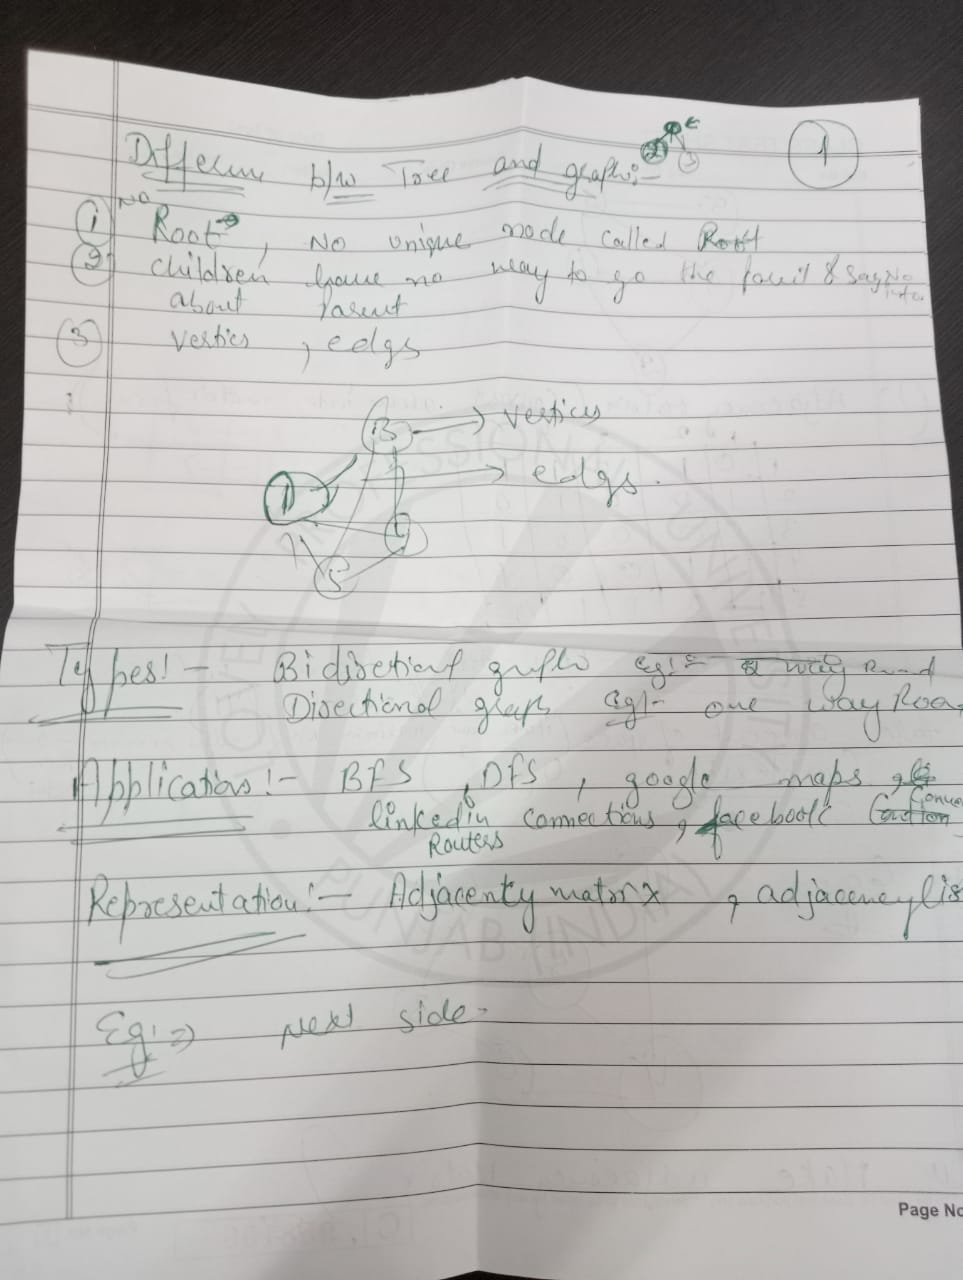 1
Difference b/w Tree and graph:-
① NO Root, No unique node called Root
② children have no way to go the & say No
about parent
③ vertics, edgs
B → vertices
1 → edgs.
5
Types:- Bidirectional graph eg:- way Road
Directional graph eg:- one way Roa
Applications:- BFS, DFS, google maps,
linkedin connections, facebook
Routers
Representation:- Adjacenty matrix, adjacency lis
Eg:⇒ Next side.
LOVELY PROFESSIONAL UNIVERSITY
PUNJAB (INDIA)
Page No